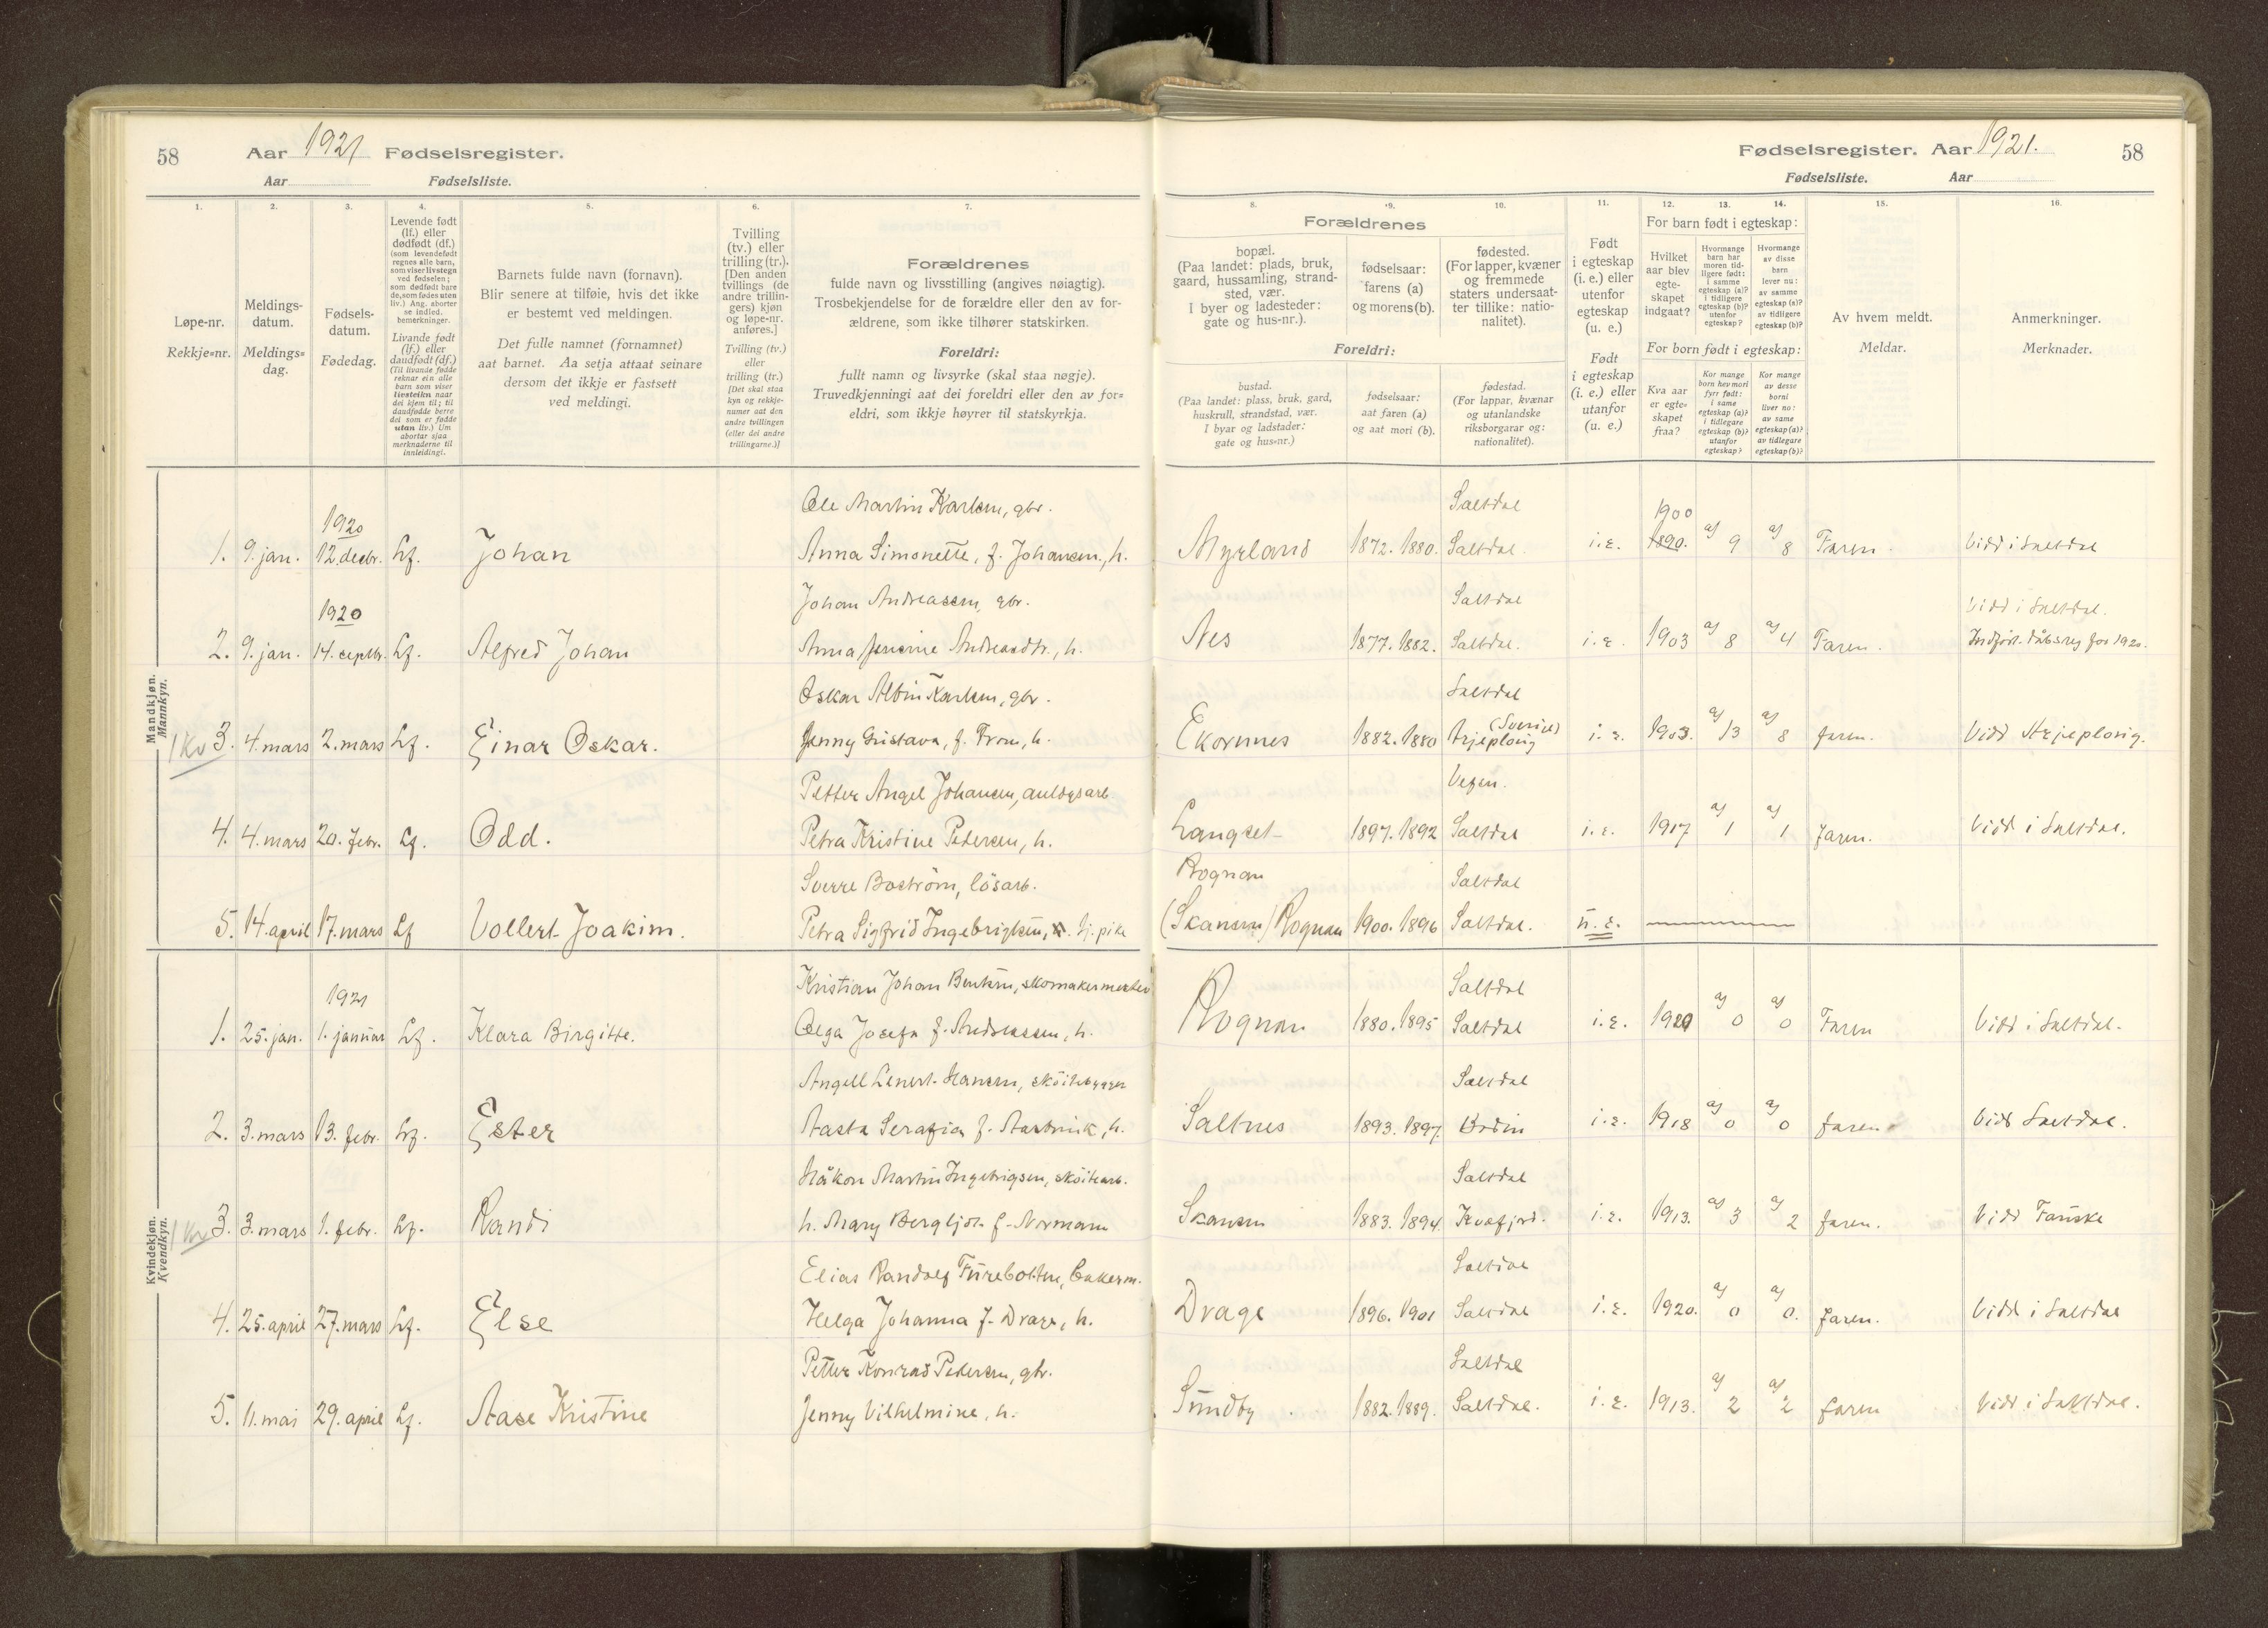 58 Aar 1921 Fødselsregister.
Aar Fødselsliste.
1. 2. 3. 4. 5. 6. 7.
Løpe-nr.
Rekkje=nr.
Meldings-
datum.
Meldings=
dag.
Fødsels-
datum.
Fødedag.
Levende født
(lf.) eller
dødfødt (df.)
(som levendefødt
regnes alle barn,
som viser livstegn
ved fødselen;
som dødfødt bare
de, som fødes uten
liv.) Ang. aborter
se indled.
bemerkninger.
Livande født
(lf.) eller
daudfødt (df.)
(Til livande fødde
reknar ein alle
barn som viser
livsteikn naar
dei kjem til; til
daudfødde berre
dei som er fødde
utan liv.) Um
abortar sjaa
merknaderne til
innleidingi.
Barnets fulde navn (fornavn).
Blir senere at tilføie, hvis det ikke
er bestemt ved meldingen.
Det fulle namnet (fornamnet)
aat barnet. Aa setja attaat seinare
dersom det ikkje er fastsett
ved meldingi.
Tvilling
(tv.) eller
trilling (tr.).
[Den anden
tvillings (de
andre trillin-
gers) kjøn
og løpe-nr.
anføres.]
Tvilling (tv.)
eller
trilling (tr.)
[Det skal staa
kyn og rekkje-
numer aat den
andre tvillingen
(eller dei andre
trillingarne.)]
Forældrenes
fulde navn og livsstilling (angives nøiagtig).
Trosbekjendelse for de forældre eller den av for-
ældrene, som ikke tilhører statskirken.
Foreldri:
fullt namn og livsyrke (skal staa nøgje).
Truvedkjenningi aat dei foreldri eller den av for=
eldri, som ikkje høyrer til statskyrkja.
Mandkjøn.
Mannkyn.
1920 Ole Martin Karlsen, gbr.
1. 9. jan. 12. decbr. Lf. Johan Anna Simonette, f. Johansen, h.
1920 Johan Andreassen, gbr.
2. 9. jan. 14. septbr. Lf. Alfred Johan Anna Andreasdtr., h.
Oskar Albin Karlsen, gbr.
1 Kv 3. 4. mars 2. mars Lf. Einar Oskar. Jenny Gustava, f. From, h.
Petter Angel Johansen, anlægsarb
4. 4. mars 20. febr. Lf. Odd. Petra Kristine Pedersen, h.
Sverre Boström, lösarb.
5. 14. april 17. mars Lf Vollert Joakim. Petra Sigfrid Ingebrigtsen, tj. pike
Kvindekjøn.
Kvendkyn.
1921 Kristian Johan Bentsen, skomakermester
1. 25. jan. 1. januar Lf. Klara Birgitte. Olga Josefa f. Andreassen, h.
Angell Lenert Hansen, sköitebygger
2. 3. mars 13. febr. Lf. Ester Aasta Serafia f. h.
Håkon Martin Ingebrigtsen, sköitearb.
1 Kv 3. 3. mars 1. febr. Lf. Randi h. Mary Bergljot f. Normann
Elias Randolf Furebotten, bakerm.
4. 25. april 27. mars Lf. Else Helga Johanna f. Drage, h.
Petter Konrad Pedersen, gbr.
5. 11. mai 29. april Lf. Aase Kristine Jenny Vilhelmine, h.
Fødselsregister. Aar 1921. 58
Fødselsliste. Aar
8. 9. 10. 11. 12. 13. 14. 15. 16.
Forældrenes
bopæl.
(Paa landet: plads, bruk,
gaard, hussamling, strand-
sted, vær.
I byer og ladesteder:
gate og hus-nr.).
fødselsaar:
farens (a)
og morens (b).
fødested.
(For lapper, kvæner
og fremmede
staters undersaat-
ter tillike: natio-
nalitet).
Foreldri:
bustad.
(Paa landet: plass, bruk, gard,
huskrull, strandstad, vær.
I byar og ladstader:
gate og hus=nr.)
fødselsaar:
aat faren (a)
og aat mori (b).
fødestad.
(For lappar, kvænar
og utanlandske
riksborgarar og:
nationalitet).
Født
i egteskap
(i. e.) eller
utenfor
egteskap
(u. e.)
Født
i egteskap
(i. e.) eller
utanfor
(u. e.)
For barn født i egteskap:
Hvilket
aar blev
egte-
skapet
indgaat?
Hvormange
barn har
moren tid-
ligere født:
i samme
egteskap (a)?
i tidligere
egteskap (b)?
utenfor
egteskap?
Hvormange
av disse
barn
lever nu:
av samme
egteskap (a)?
av tidligere
egteskap (b)?
For born født i egteskap:
Kva aar
er egte=
skapet
fraa?
Kor mange
born hev mori
fyrr født:
i same
egteskap (a)?
i tidlegare
egteskap (b)?
utanfor
egteskap?
Kor mange
av desse
borni
liver no:
av same
egteskap (a)?
av tidlegare
egteskap (b)?
Av hvem meldt.
Meldar.
Anmerkninger.
Merknader.
Saltdal 1900
Myrland 1872. 1880. Saltdal. i.e. 1890. a) 9 a) 8 Faren. Vidd i Saltdal
Saltdal Vidd i Saltdal.
Nes 1877. 1882. Saltdal. i.e. 1903 a) 8 a) 4 Faren. Indförl. dåbsreg for 1920.
Saltdal
Ekornnes 1882. 1880 Arjeploug (Sverige) i.e. 1903. a) 13 a) 8 faren. Vidd Arjeploug.
Vefsn.
Langset 1897. 1892 Saltdal i.e. 1917 a) 1 a) 1 faren. Vidd i Saltdal.
Rognan Saltdal
(Skansen) Rognan 1900. 1896 Saltdal. u.e.
Saltdal
Rognan 1880. 1895 Saltdal i.e. 1920 a) 0 a) 0 Faren Vidd i Saltdal.
Saltdal
Saltnes 1893. 1897. Bodin i.e. 1918 a) 0 a) 0 faren Vidd Saltdal.
Saltdal
Skansen 1883. 1894. Kvæfjord. i.e. 1913. a) 3 a) 2 faren. Vidd Fauske
Saltdal
Drage 1896. 1901 Saltdal i.e. 1920. a) 0 a) 0. faren. Vidd i Saltdal
Saltdal
Sundby 1882. 1889. Saltdal. i.e. 1913. a) 2 a) 2 faren Vidd i Saltdal.